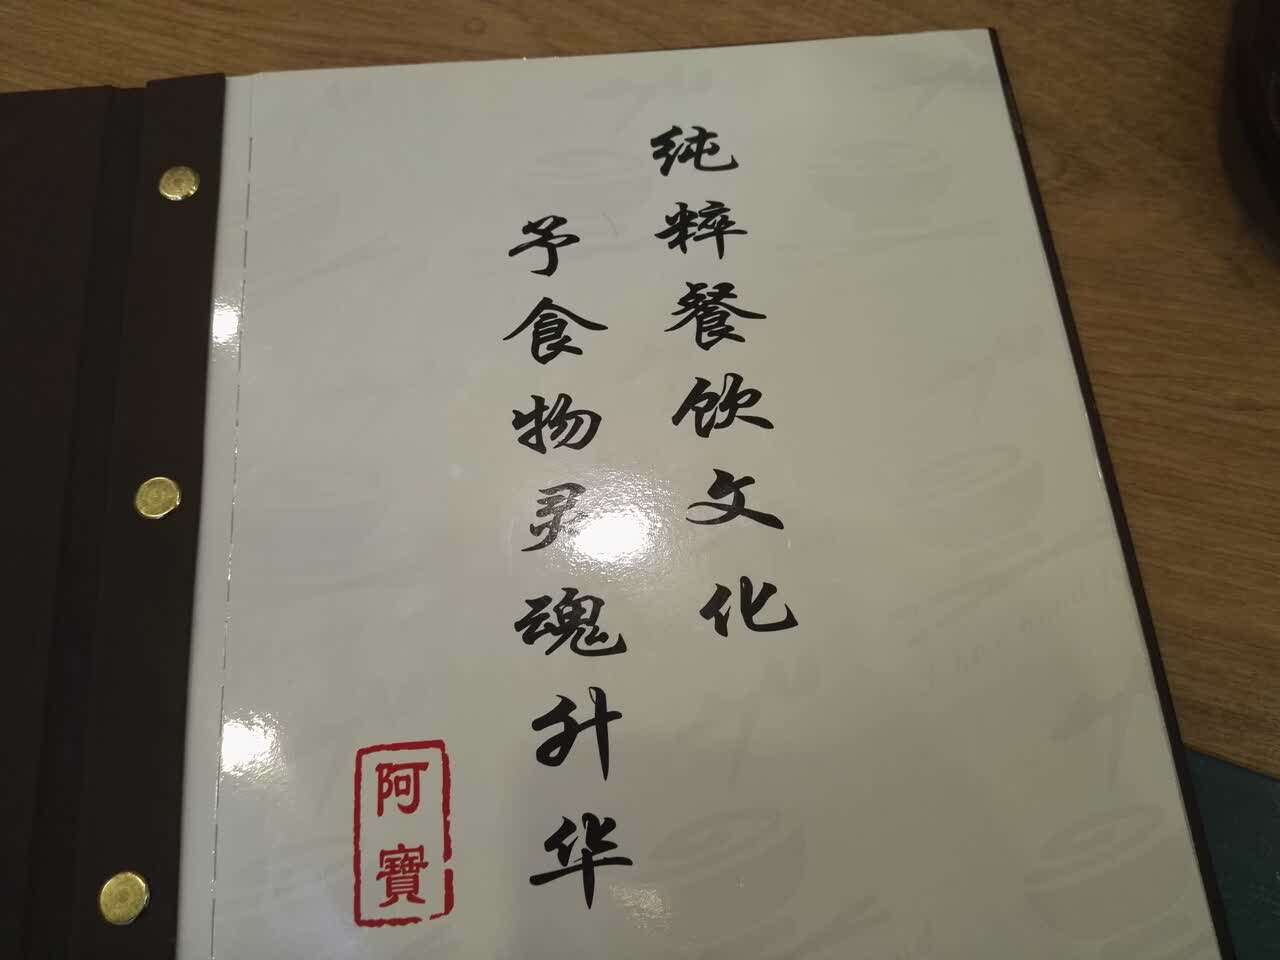 纯粹餐饮文化
予食物灵魂升华
阿寳